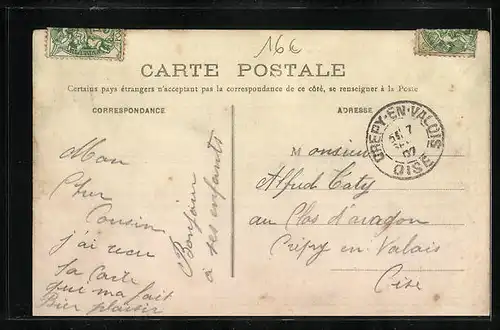 16€
CARTE POSTALE
Certains pays étrangers n'acceptant pas la correspondance de ce côté, se renseigner à la Poste
CORRESPONDANCE
ADRESSE
Mon
Cher
Cousin
j'ai recu
ta Carte
qui ma fait
Bien plaisir
Bonjour
à ses enfants
CREPY-EN-VALOIS
OISE
07
Monsieur
Alfred Caty
au Clos d'aragon
Crépy en Valois
Oise